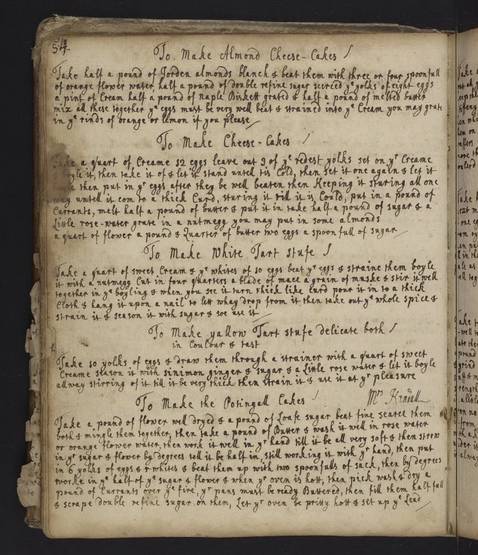 54
To Make Almond Cheese-Cakes
Take half a pound of Jorden almonds blanch & beat them with three or four spoonfull
of orange flower water half a pound of doble refine sugar seirced ye yolks of eight eggs
a pint of Cream half a pound of naple Biskett gratd & half a pound of melted butter
mix all these together ye eggs must be very well beat & strained into ye Cream you may grate
in ye rinds of orange or lemon if you please
To Make Cheese-Cakes
Take a quart of Creame 12 eggs leave out 9 of ye yolks set on ye Creame
boyle it, then take it of & let it stand untell tis Cold, then set it one again & let it
then put in ye eggs after they be well beaten then Keeping it sturing all one
way untell it com to a thick Curd, sturing it till it is Could, put in a pound of
Currants, melt half a pound of butter & put it in take half a pound of sugar & a
Little rose-water grate in a nutmegg you may put in some almonds
a quart of flower a pound & Quarter of butter two eggs a spoon full of sugar
To Make White Tart stufe
Take a quart of sweet Cream & ye whites of 10 eggs beat ye eggs & straine them boyle
it with a nutmegg Cut in four quarters a blade of mace a grain of muske & stir it well
together in ye boyling & when you see it turn thick like Curd pour it in to a thick
Cloth & hang it upon a nail to let whay drop from it then take out ye whole spice &
strain it & season it with sugar & soe use it
To Make yallow Tart stufe delicate both
in Coulour & tast
Take 10 yolks of eggs & draw them through a strainer with a quart of sweet
Creame season it with sinimon ginger & sugar & a Little rose water & let it boyle
allway stirring of it till it be very thick then strain it & use it at ye pleasure
To Make the Potingall Cakes
Take a pound of flower well dryed & a pound of Loafe sugar beat fine searce them
both & mingle them together, then take a pound of Butter & wash it well in rose water
or orange flower water, then work it well in yr hand till it be all very soft & then strow
in ye sugar & flower by degrees till it be half in, still working it with yr hand, then put
in 6 yolks of eggs & 4 whites & beat them up with two spoonfulls of sack, then by degrees
worke in ye half of ye sugar & flower & when ye oven is hott, then pick wash & dry a
pound of Currants over ye fire, yr pans must be ready Buttered, then fill them half full
& scrape double refine sugar on them, Let yr oven be pretty hott & set up ye Lead